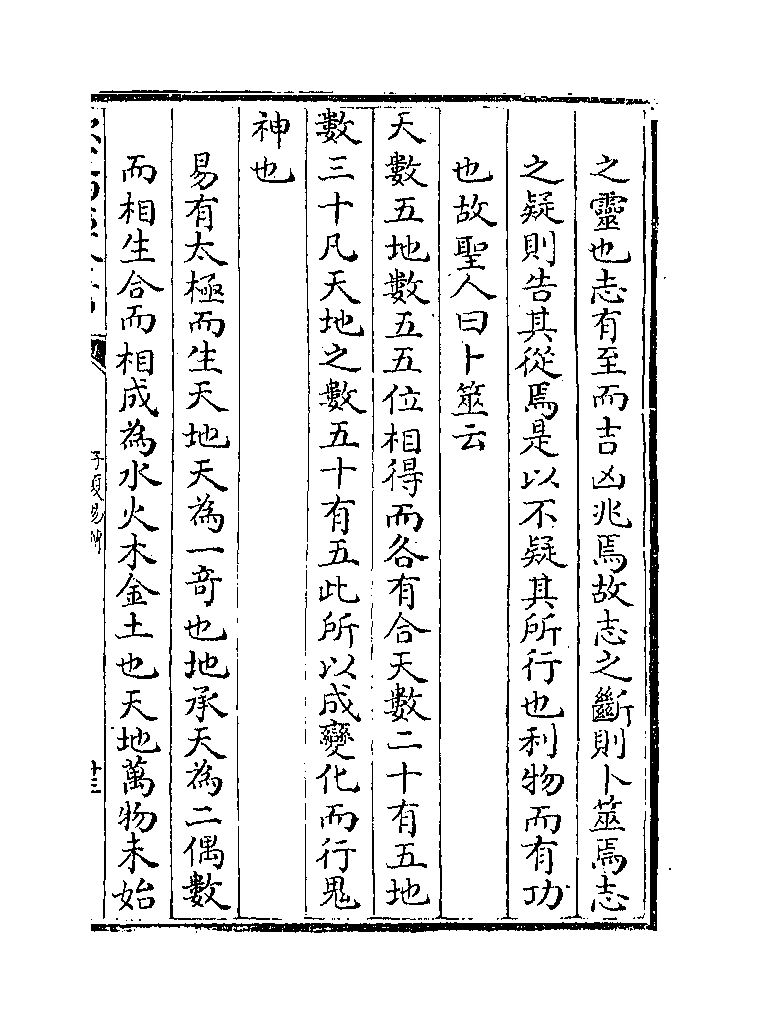 之靈也志有至而吉凶兆焉故志之斷則卜筮焉志
之疑則告其從焉是以不疑其所行也利物而有功
也故聖人曰卜筮云
天數五地數五五位相得而各有合天數二十有五地
數三十凡天地之數五十有五此所以成變化而行鬼
神也
易有太極而生天地天為一奇也地承天為二偶數
而相生合而相成為水火木金土也天地萬物未始
子夏易傳